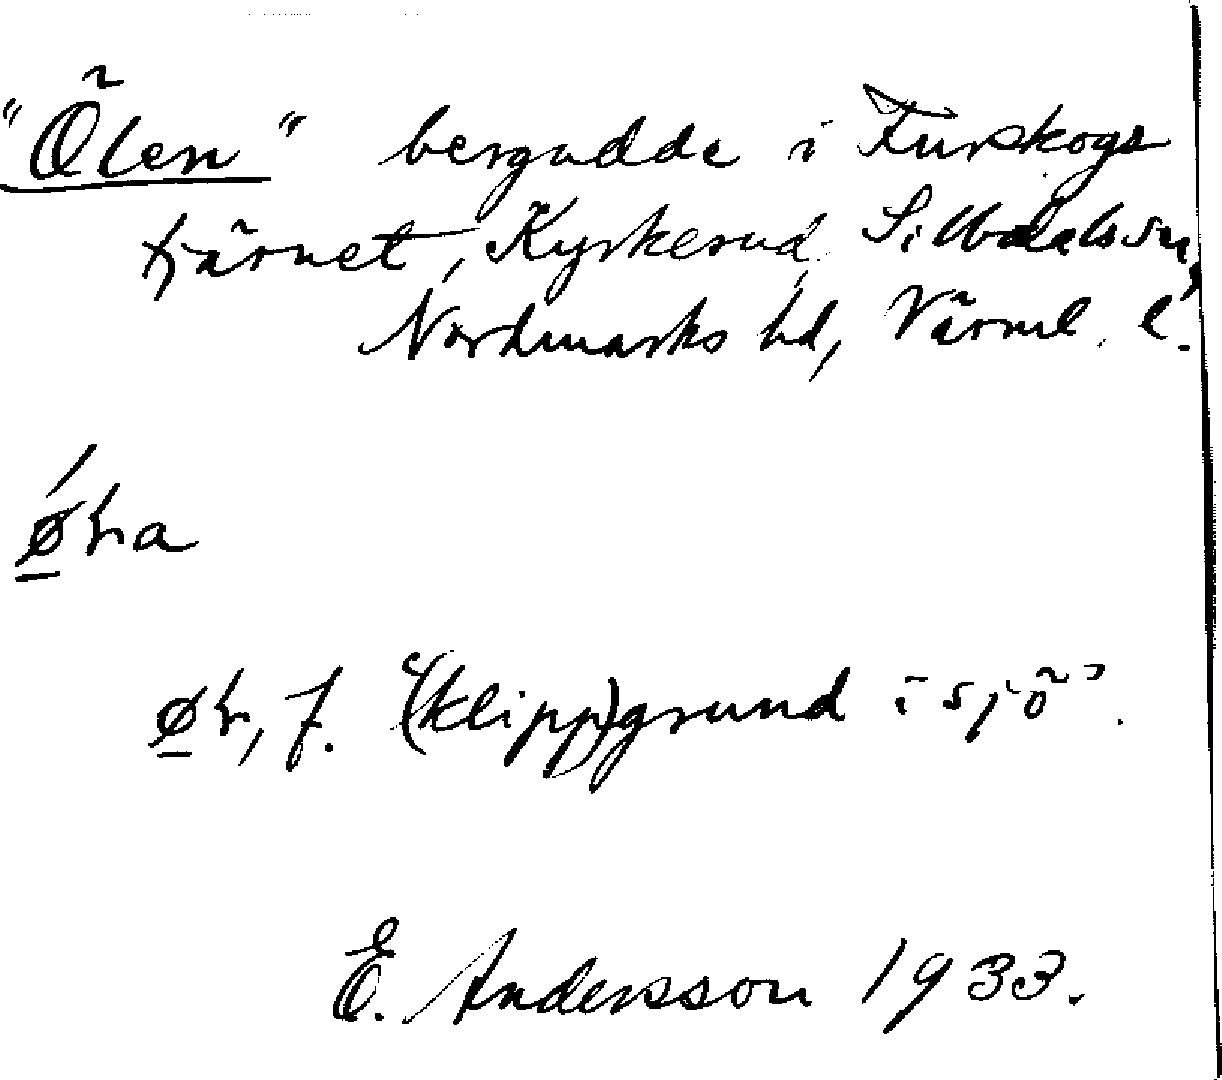 "Ölen" bergudde i Furskogs
tjärnet, Kyrkerud, Silbodals sn,
Nordmarks hd, Värml. l.
ø̱ɽa
ø̱ɽ, f. "(klipp)grund i sjö".
E. Andersson 1933.